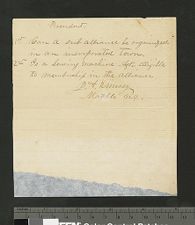 President
1st Can a sub alliance be organized
in an incorporated town
2nd Is a Sewing Machine Agt. eligible
to membership in the alliance